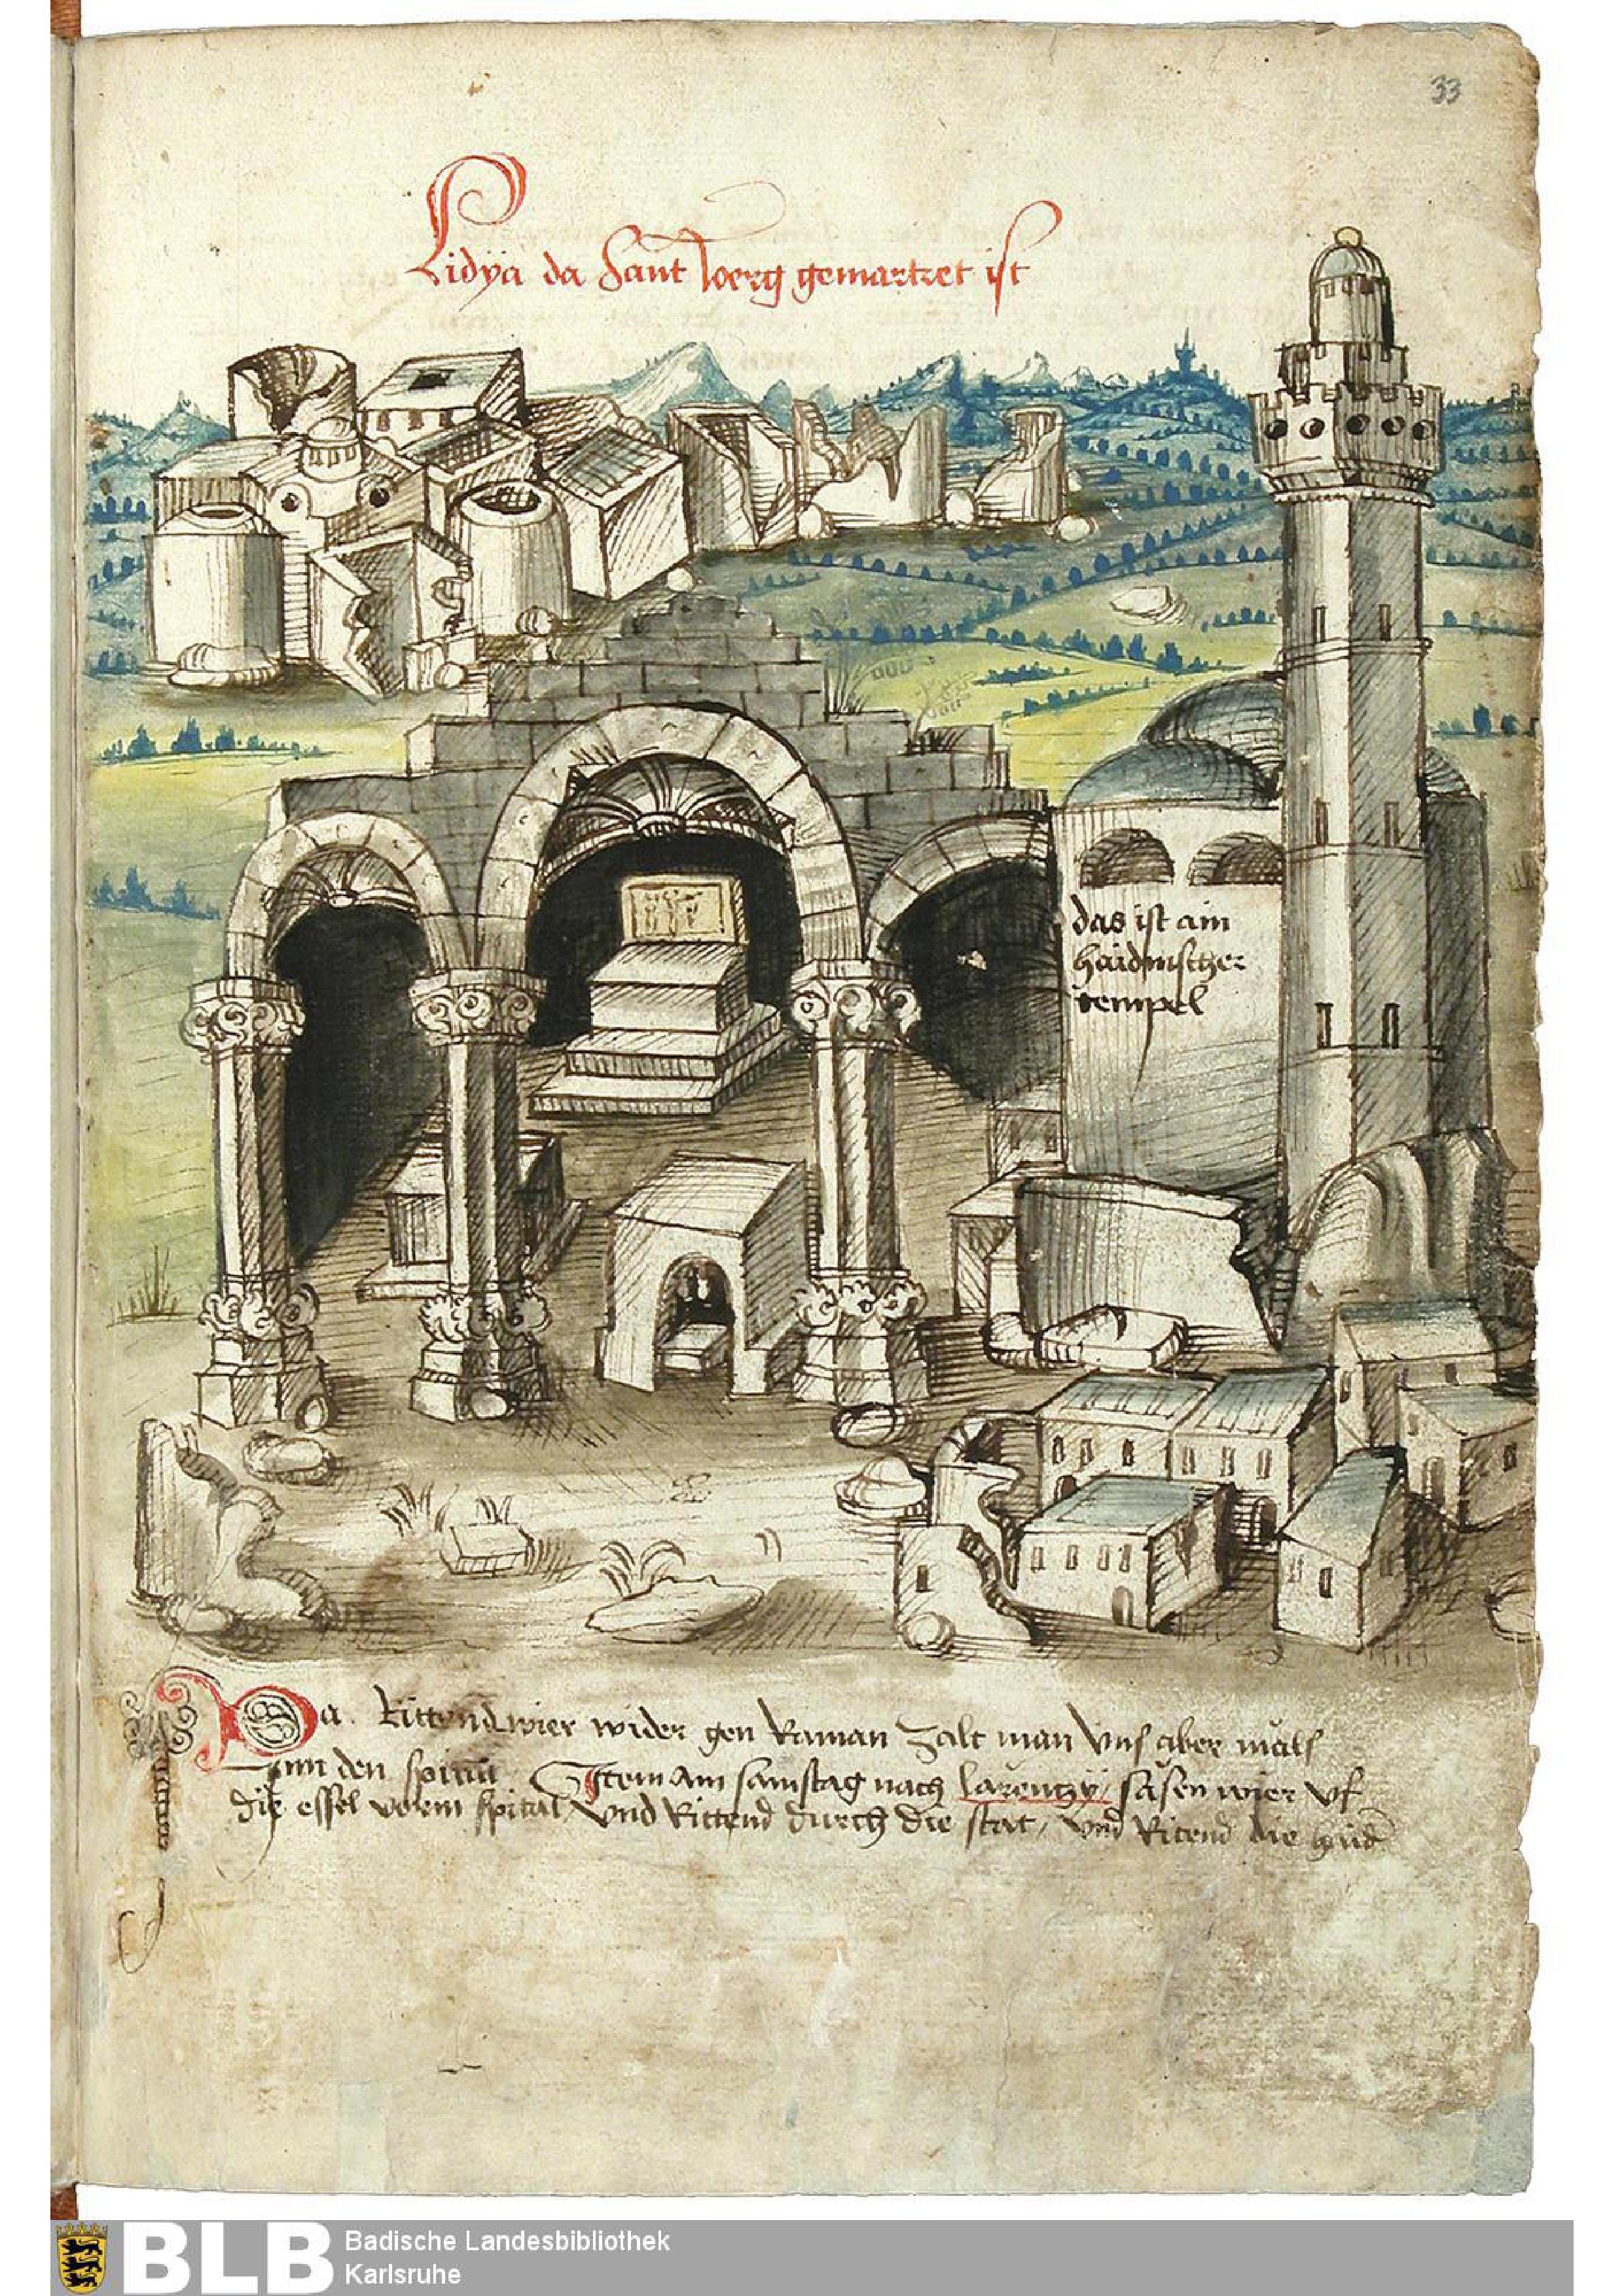 33
Lidya da Sant Joerg gemartret ist
das ist ain
haidnischer
tempel
Da Rittend wier wider gen Raman zalt man vns aber mals
jnn den spittal Item am samstag nach larentzÿ sasen wier vf
die essel vorm spital vnd Rittend durch die stat / vnd Ritend die
BLB
Badische Landesbibliothek
Karlsruhe